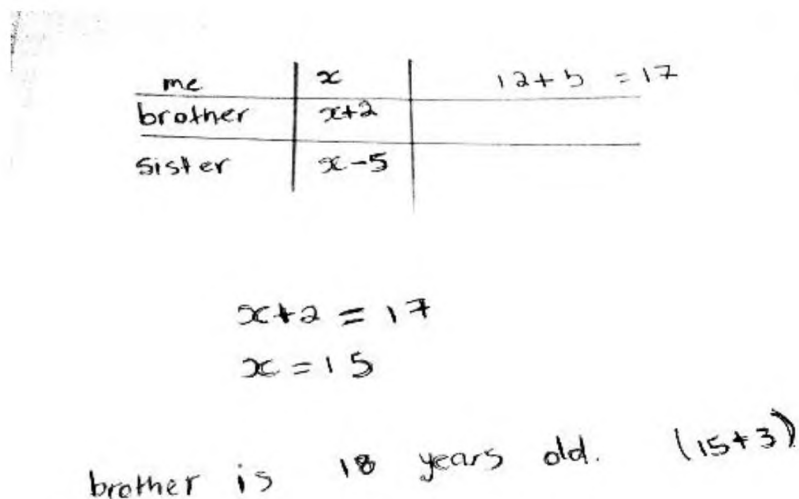 me x 12+5 = 17
brother x+2
sister x-5
x+2 = 17
x = 15
brother is 18 years old. (15+3)